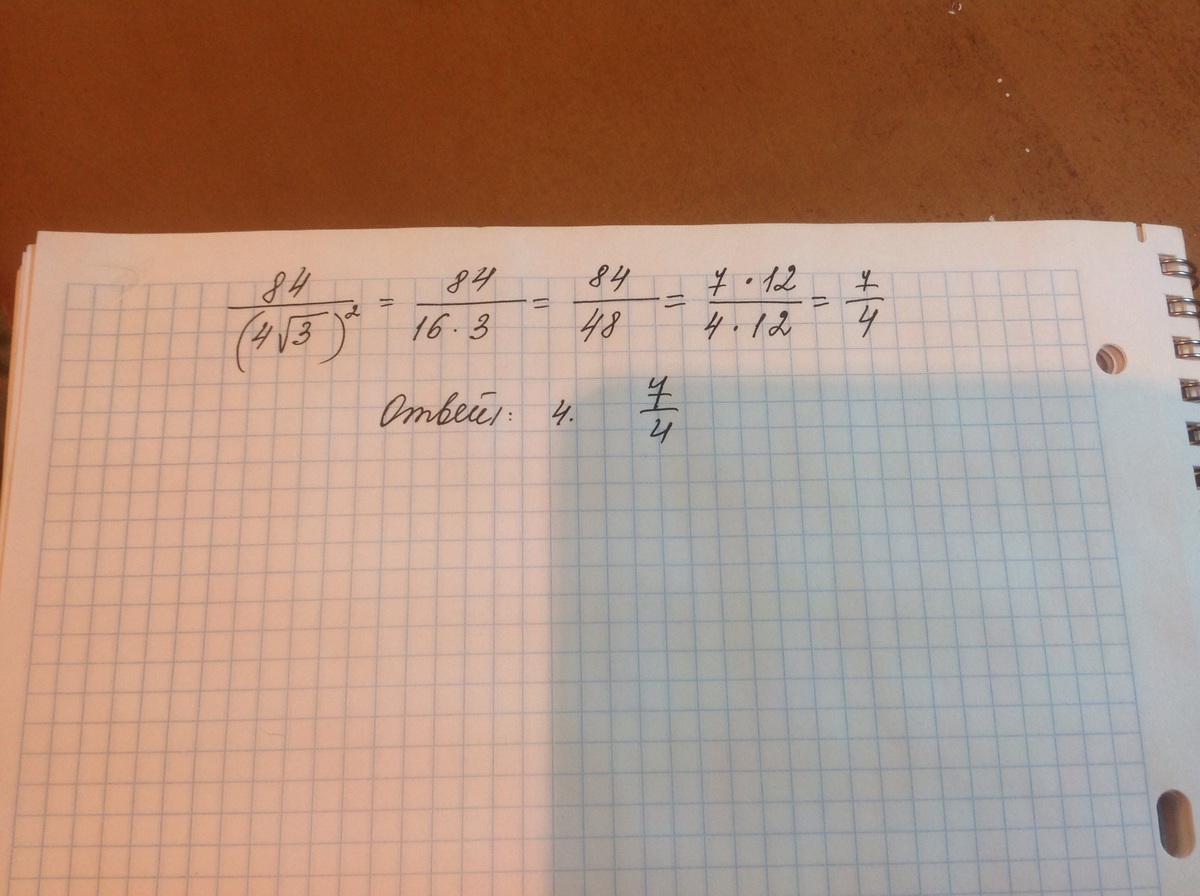 84/(4√3)² = 84/(16·3) = 84/48 = (7·12)/(4·12) = 7/4
Ответ: 4. 7/4